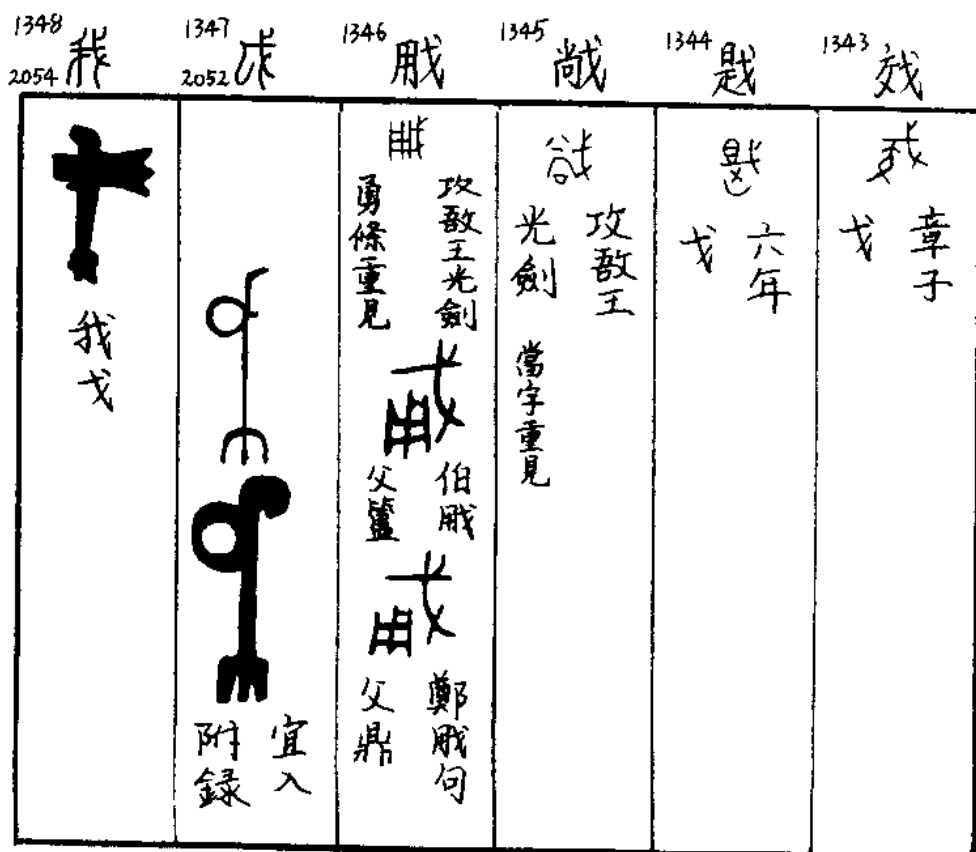 1343
章子
戈
1344
六年
戈
1345
攻敔王
光劍
當字重見
1346
攻敔王光劍
勇條重見
伯
父
鄭 句
父鼎
1347 戉
2052
宜入
附錄
1348 我
2054
我戈